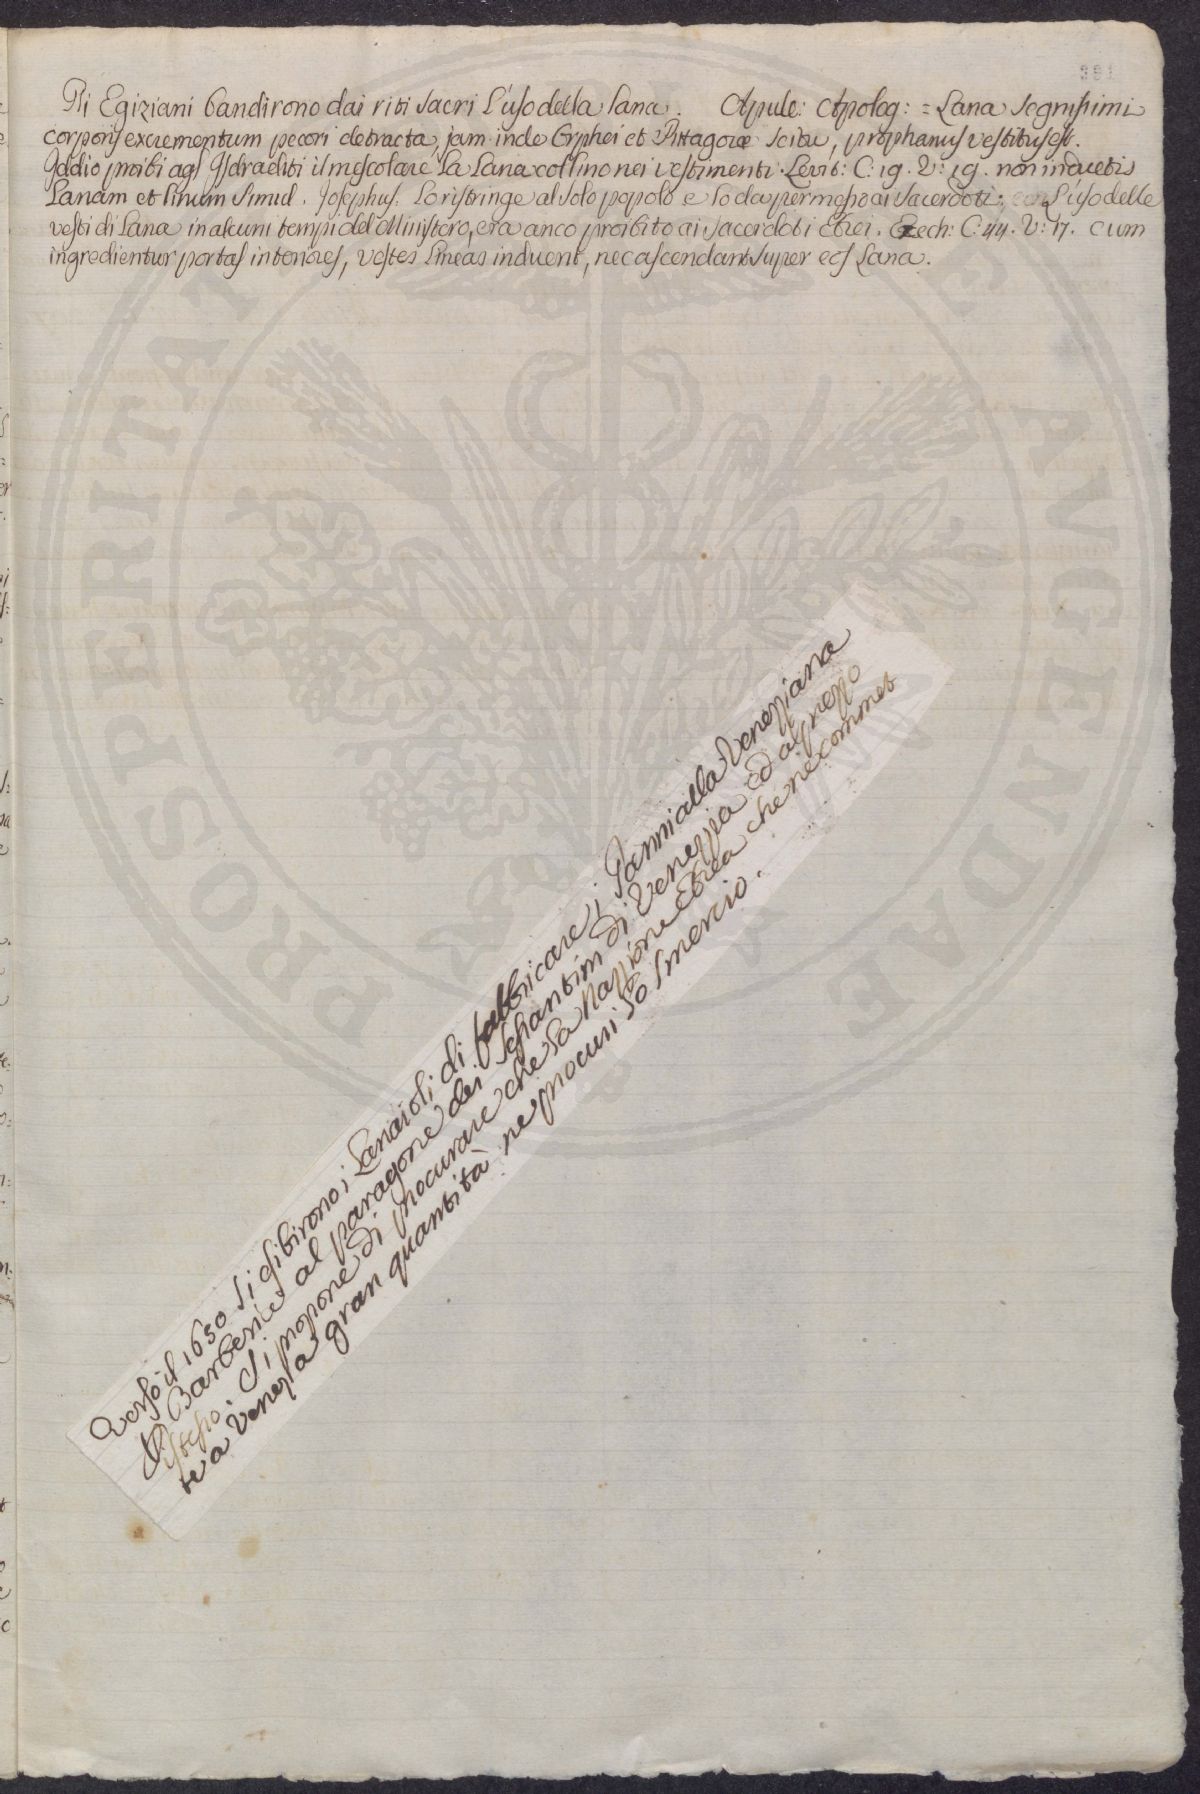 Gli Egiziani bandirono dai riti sacri l'uso della lana. Apule: Apolog: = Lana segnissimi
corporis excrementum pecori detracta, jam inde Orphei et Pittagoræ scitu, prophanus vestitus est.
Iddio proibì agl'Isdraeliti il mescolare la Lana col lino nei vestimenti. Levit: C: 19. V: 19. non induetis
Lanam et linum simul. Josephus. Lo ristringe al solo popolo e lo dà permesso ai Sacerdoti; l'uso delle
vesti di Lana in alcuni tempi del Ministero, era anco proibito ai sacerdoti Ebrei. Ezech: C: 44. V: 17. cum
ingredientur portas interiores, vestes lineas induent, nec ascendant super eos Lana.
Verso il 1650 si esibirono i Lanaioli di fabbricare i Panni alla Veneziana
p Barberia al paragone dei Schantim di Venezia ed al prezzo
istesso. Si propone di procurare che la Nazzione Ebrea che ne commet
te a Venezia gran quantità ne procuri lo smercio.
PROSPERITATI PUBLICAE AVGENDAE